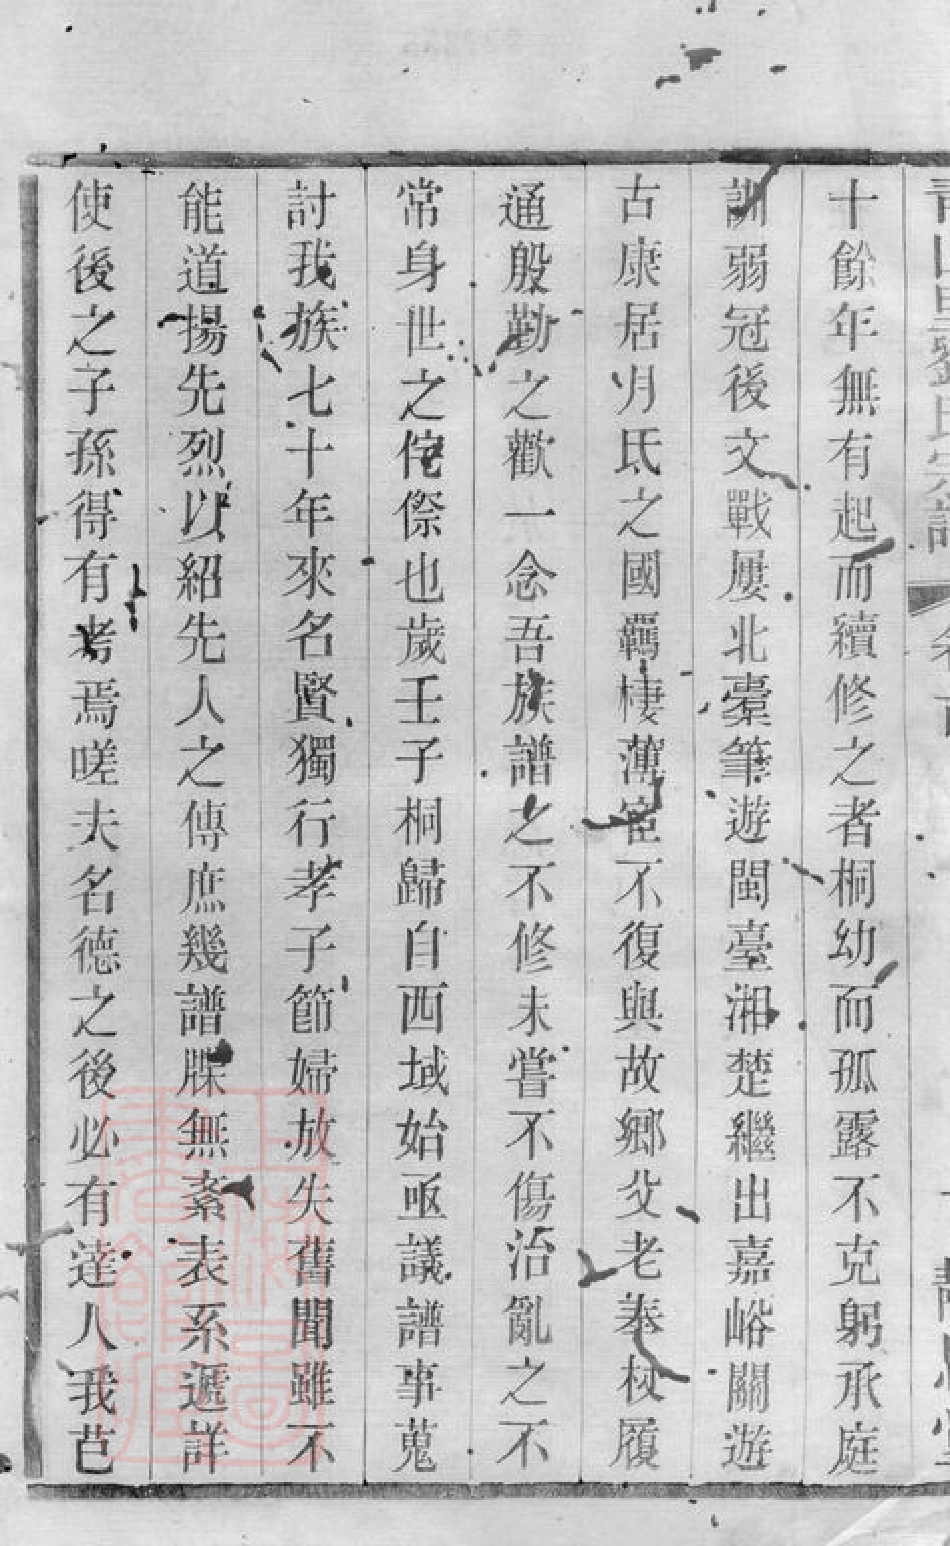 十餘年無有起而續修之者桐幼而孤露不克躬承庭
訓弱冠後文戰屢北橐筆遊閩臺湘楚繼出嘉峪關遊
古康居月氏之國羈棲薄宦不復與故鄉父老奉杖履
通殷勤之歡一念吾族譜之不修未嘗不傷治亂之不
常身世之侘傺也歲壬子桐歸自西域始亟議譜事蒐
討我族七十年來名賢獨行孝子節婦放失舊聞雖不
能道揚先烈以紹先人之傳庶幾譜牒無紊表系遞詳
使後之子孫得有考焉嗟夫名德之後必有達人我芭